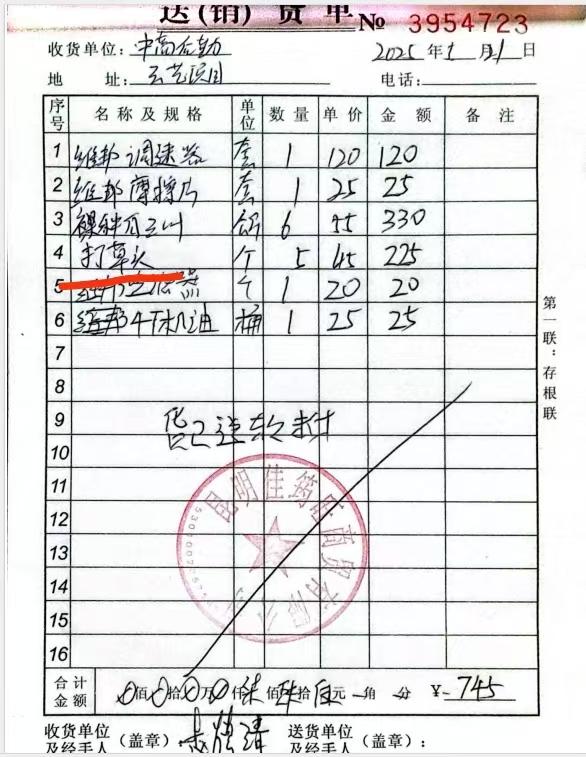 送(销)货单 № 3954723
收货单位: 中高后勤 2025年1月21日
地 址: 云艺校园 电话:
序号 名称及规格 单位 数量 单价 金额 备注
1 维邦调速器 套 1 120 120
2 维邦摩擦片 套 1 25 25
3 6 55 330
4 打草头 个 5 45 225
5 个 1 20 20
6 维邦 机油 桶 1 25 25
7
8
9 货已送 款未付
10
11
12
13
14
15
16
昆明佳筠 商贸有限公司
合计金额 佰 拾 万 仟 柒 佰 肆 拾 伍 元 角 分 ¥ 745
收货单位及经手人(盖章): 送货单位及经手人(盖章):
第一联:存根联